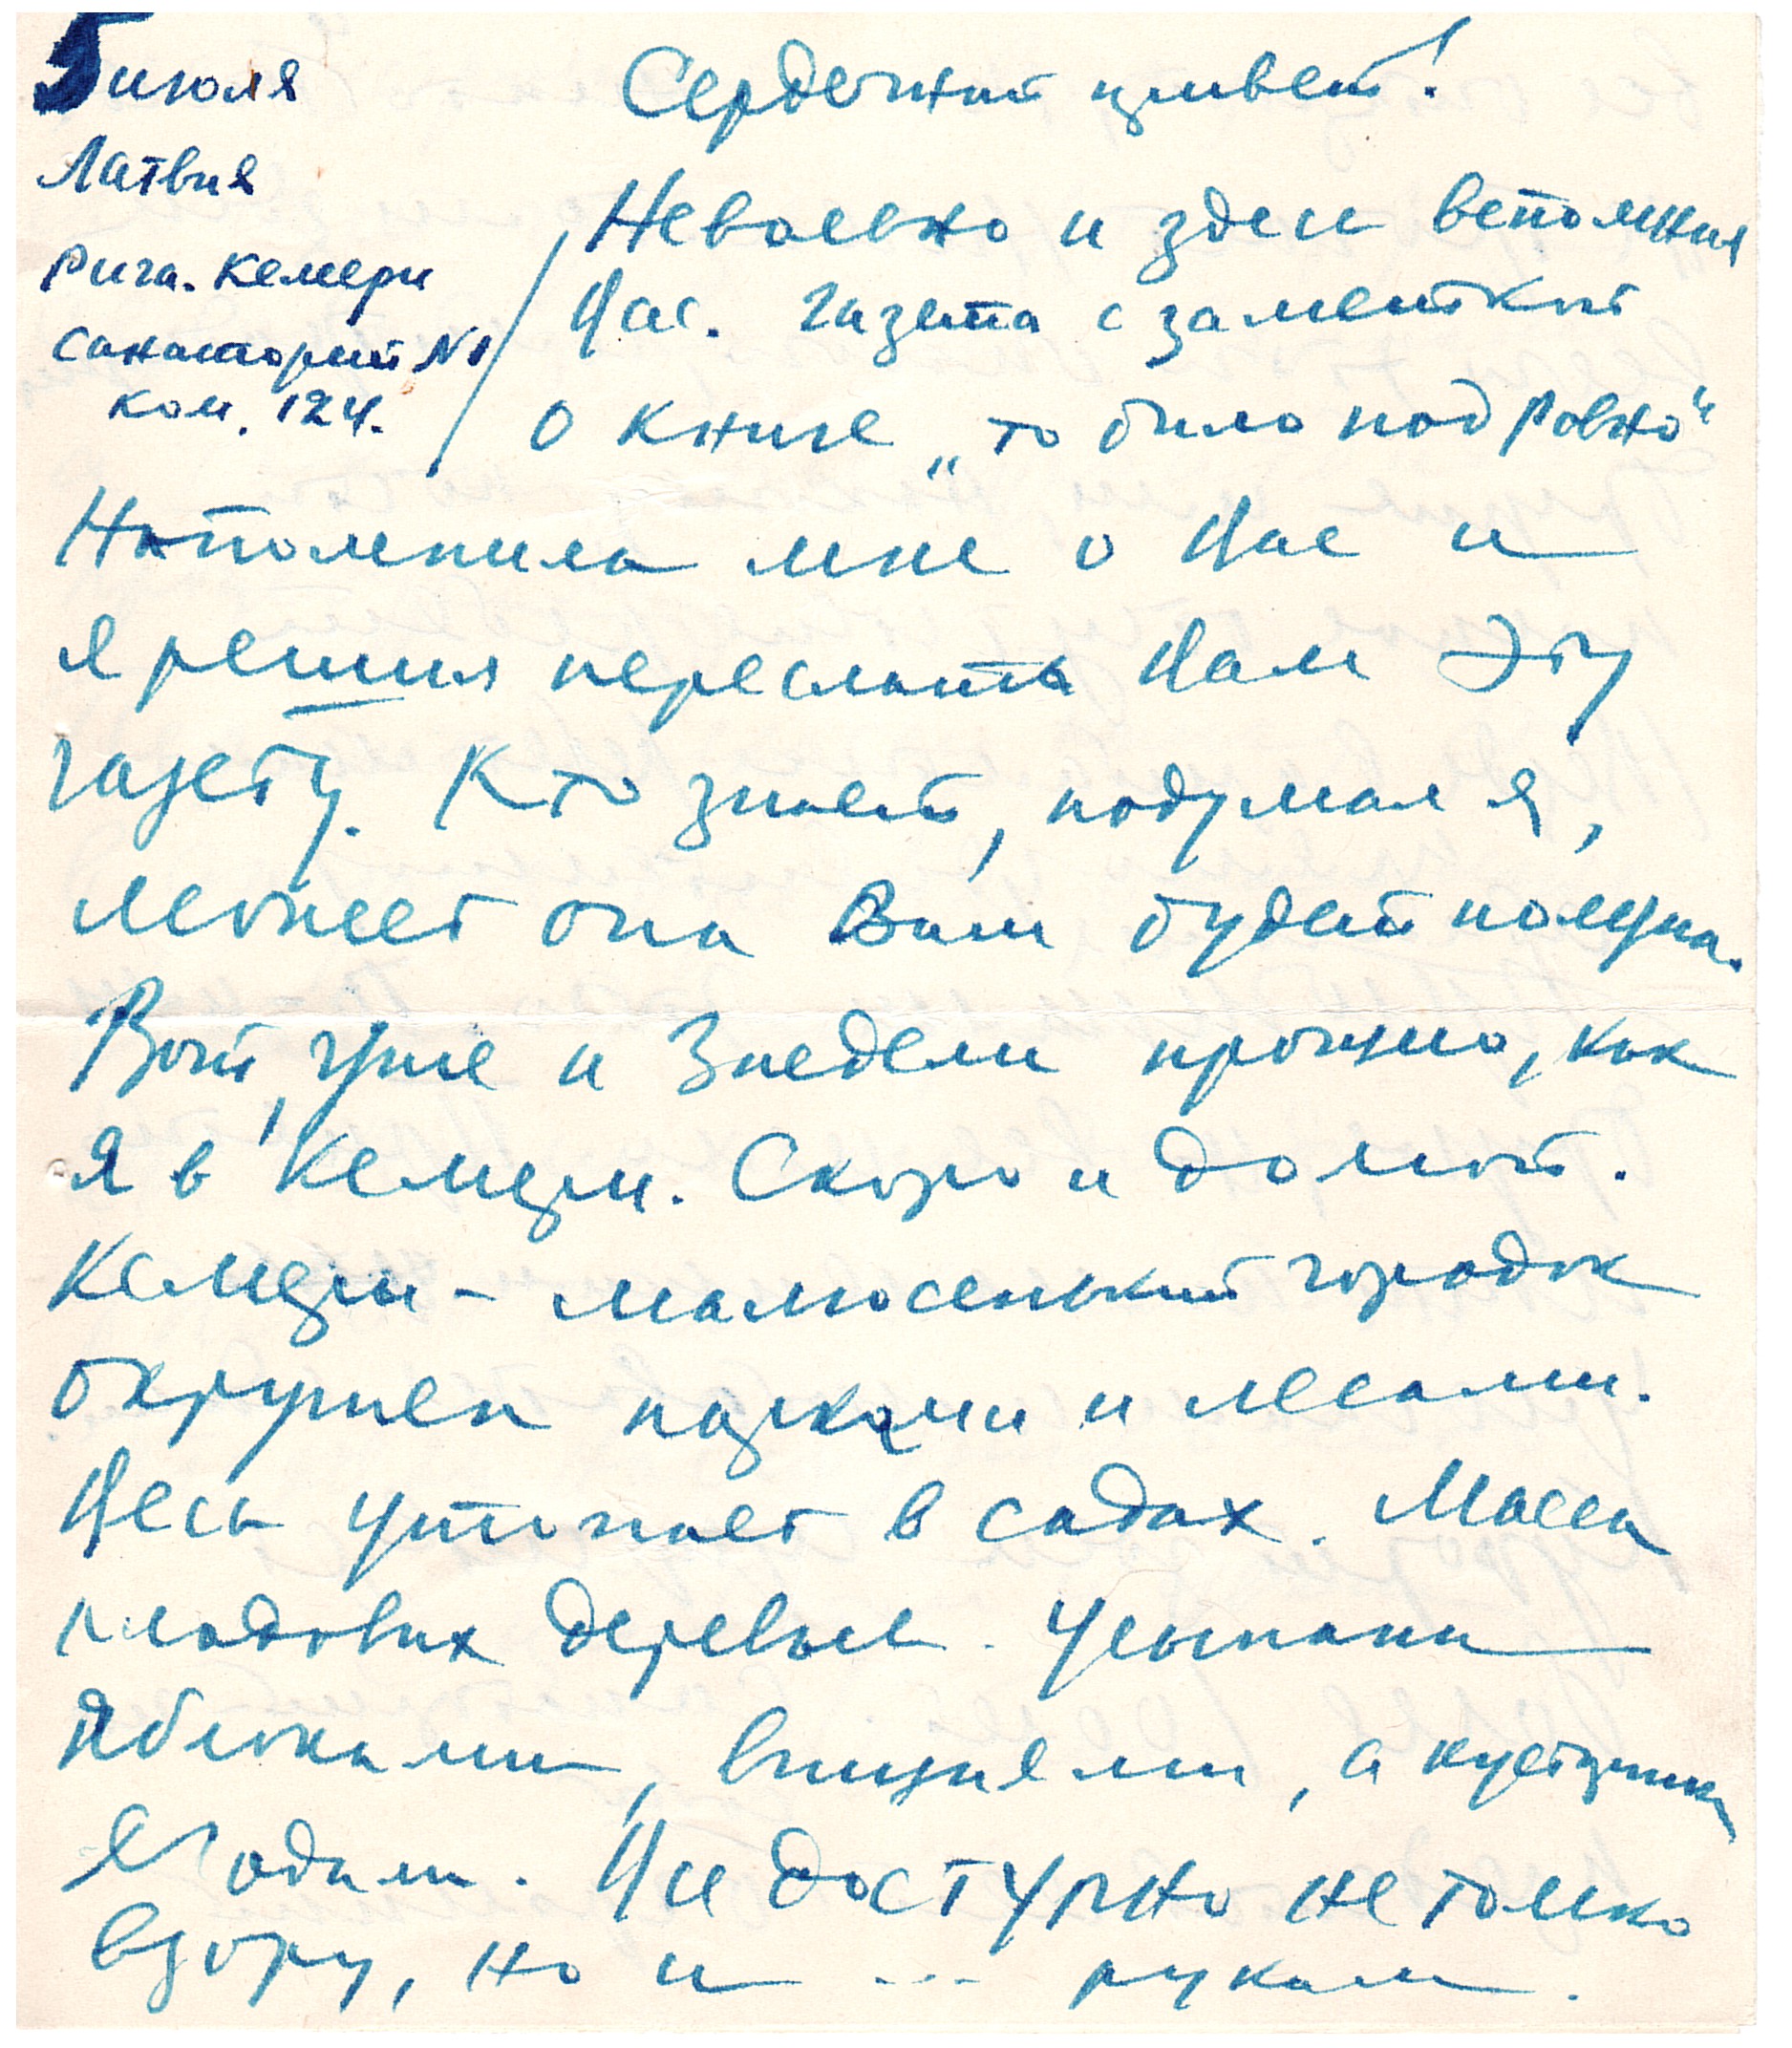 5 июля
Латвия
Рига. Кемери
Санаторий №1
ком. 124.
Сердечный привет!
Невольно и здесь вспомнил
Вас. Газета с заметкой
о книге „то было под Ровно“
Напомнила мне о Вас и
я решил переслать Вам эту
газету. Кто знает, подумал я,
может она Вам будет полезна.
Вот, уже и 3 недели прошло, как
я в Кемери. Скоро и домой.
Кемери - малюсенький городок
окружен парками и лесами.
Весь утопает в садах. Масса
плодовых деревьев. Усыпаны
яблоками, вишнями, а кустарники
ягодами. Все доступно не только
взору, но и ... рукам.